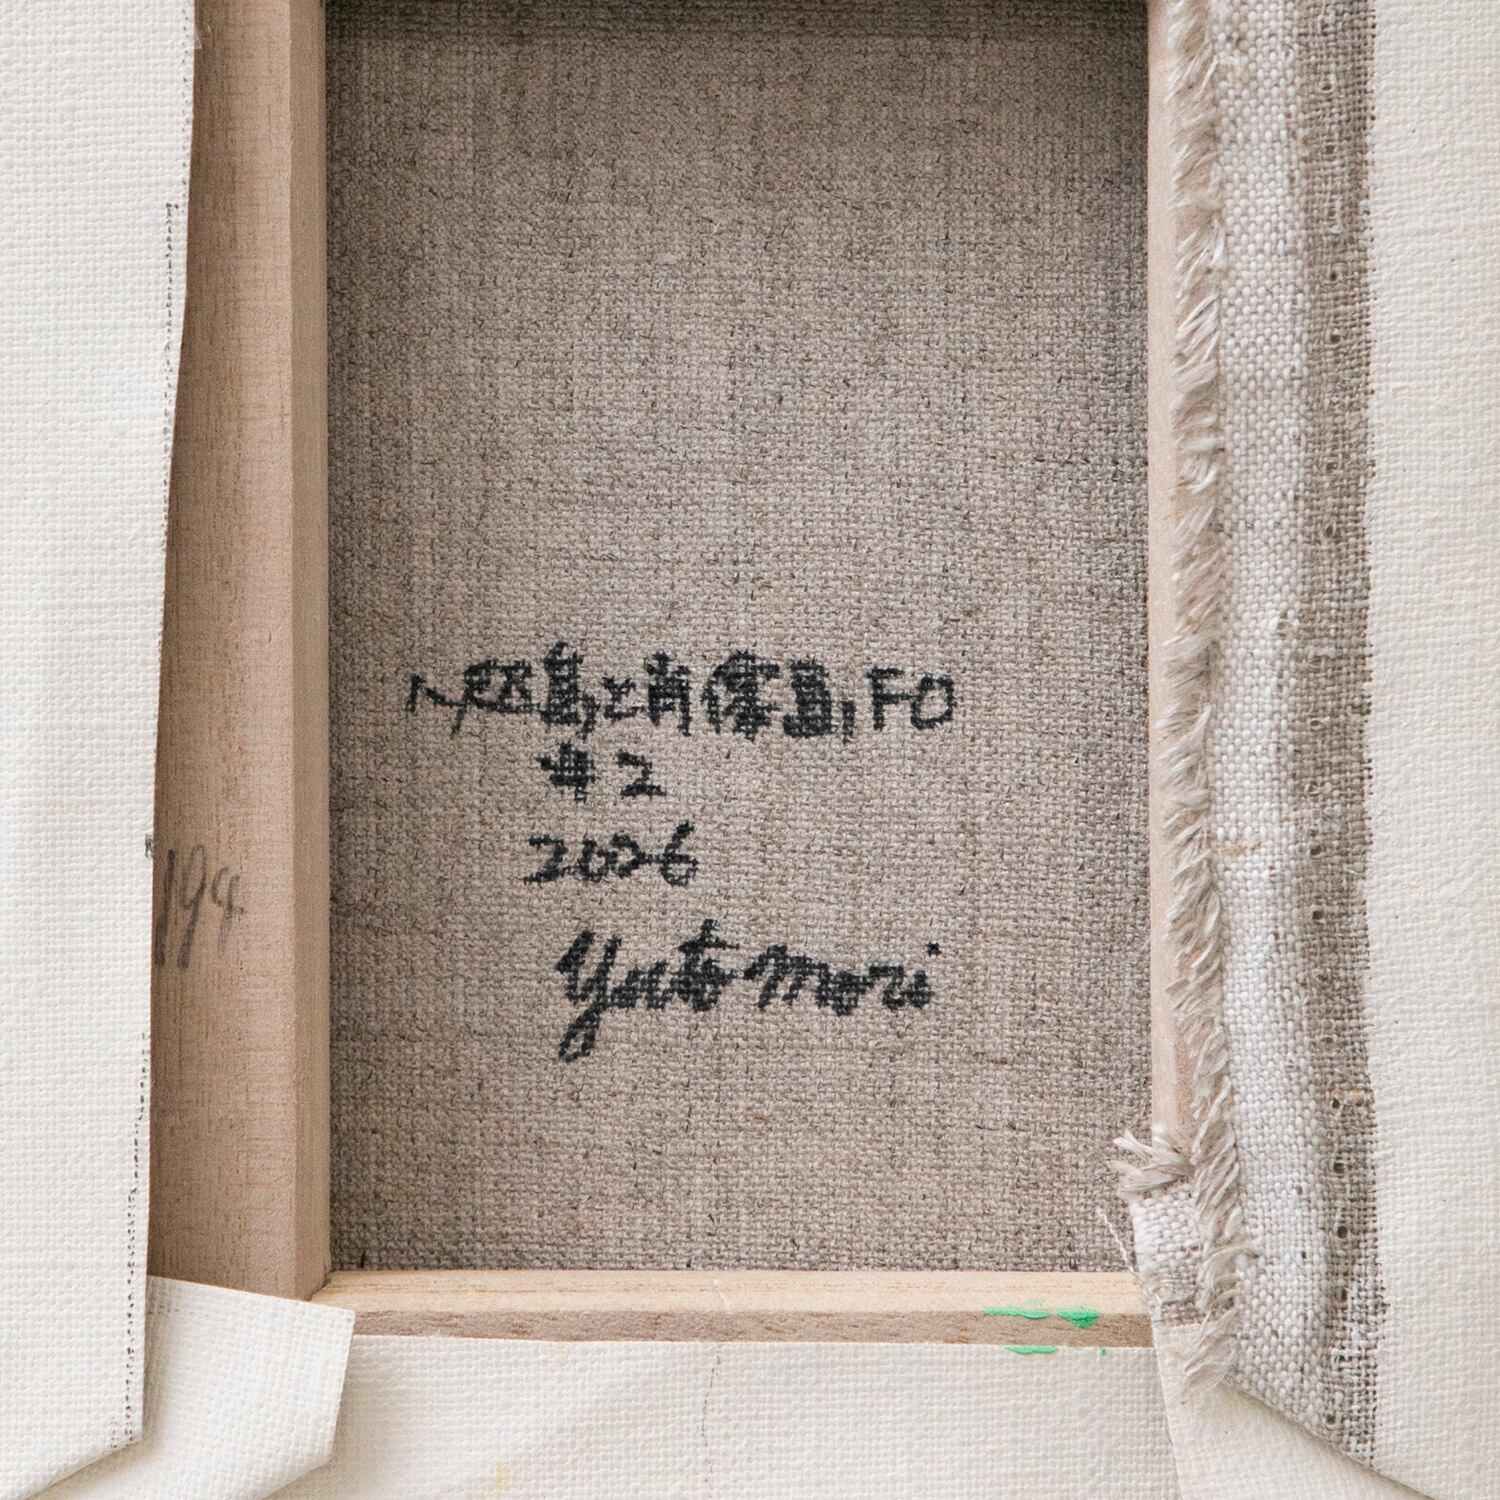 島と肖像画 F0
#2
2006
Yuto Mori
194